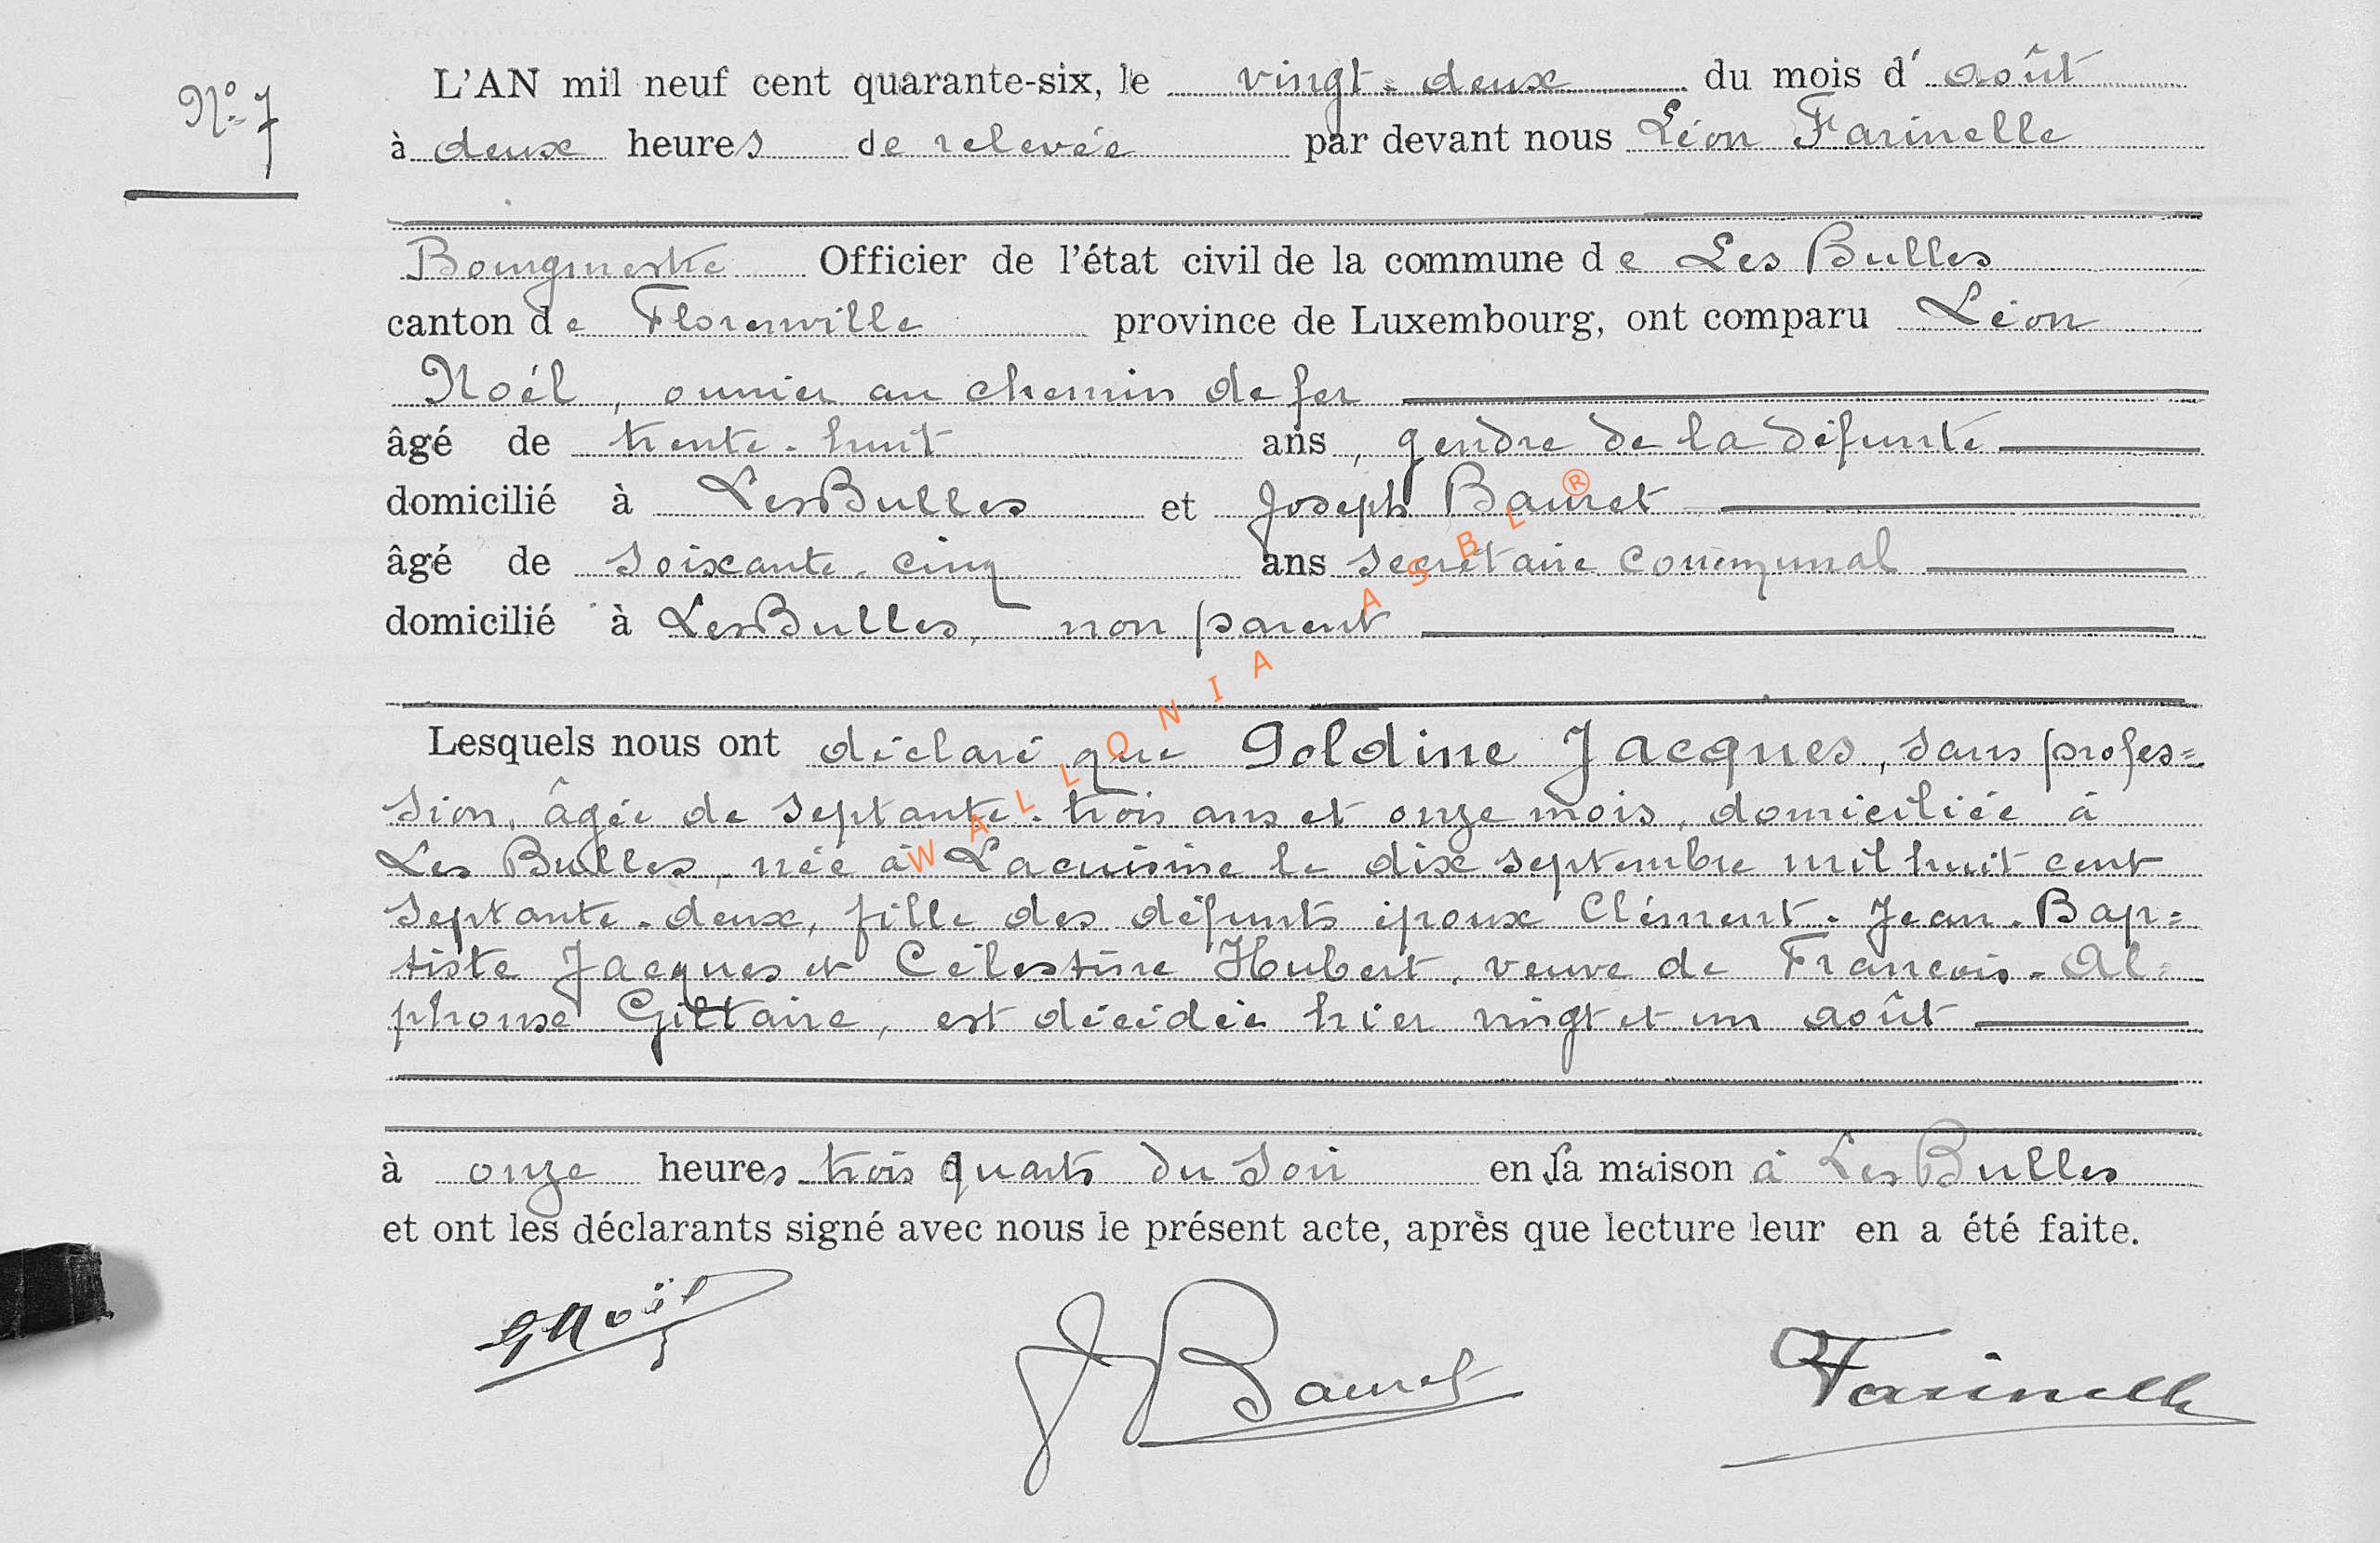 N° 7
L'AN mil neuf cent quarante-six, le vingt-deux du mois d'août
à deux heures de relevée par devant nous Léon Farinelle
Bourgmestre Officier de l'état civil de la commune de Les Bulles
canton de Florenville province de Luxembourg, ont comparu Léon
Noél, ouvrier au chemin de fer
âgé de trente-huit ans, gendre de la défunte
domicilié à Les Bulles et Joseph Bauret
âgé de soixante-cinq ans secrétaire communal
domicilié à Les Bulles, non parent
Lesquels nous ont déclaré que Goldine Jacques, sans profes=
sion, âgée de septante-trois ans et onze mois, domiciliée à
Les Bulles, née à Lacuisine le dix septembre mil huit cent
septante-deux, fille des défunts époux Clément-Jean-Bap=
tiste Jacques et Célestine Hubert, veuve de François-Al=
phonse Giltaire, est décédée hier vingt et un août
à onze heures trois quarts du soir en sa maison à Les Bulles
et ont les déclarants signé avec nous le présent acte, après que lecture leur en a été faite.
Noël J Bauret Farinelle
WALLONIA ASBL ®